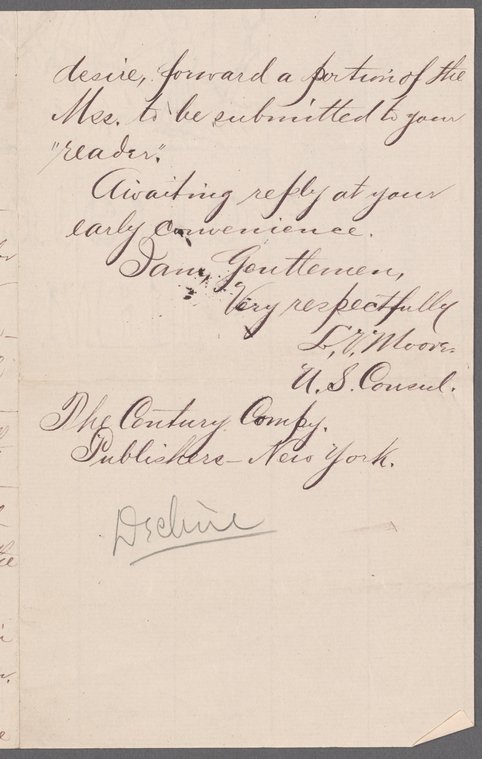 desire, forward a portion of the
Mss. to be submitted to your
"reader."
Awaiting reply at your
early convenience.
I am, Gentlemen,
Very respectfully
Moore
U. S. Consul.
The Century Compy.
Publishers – New York.
Decline